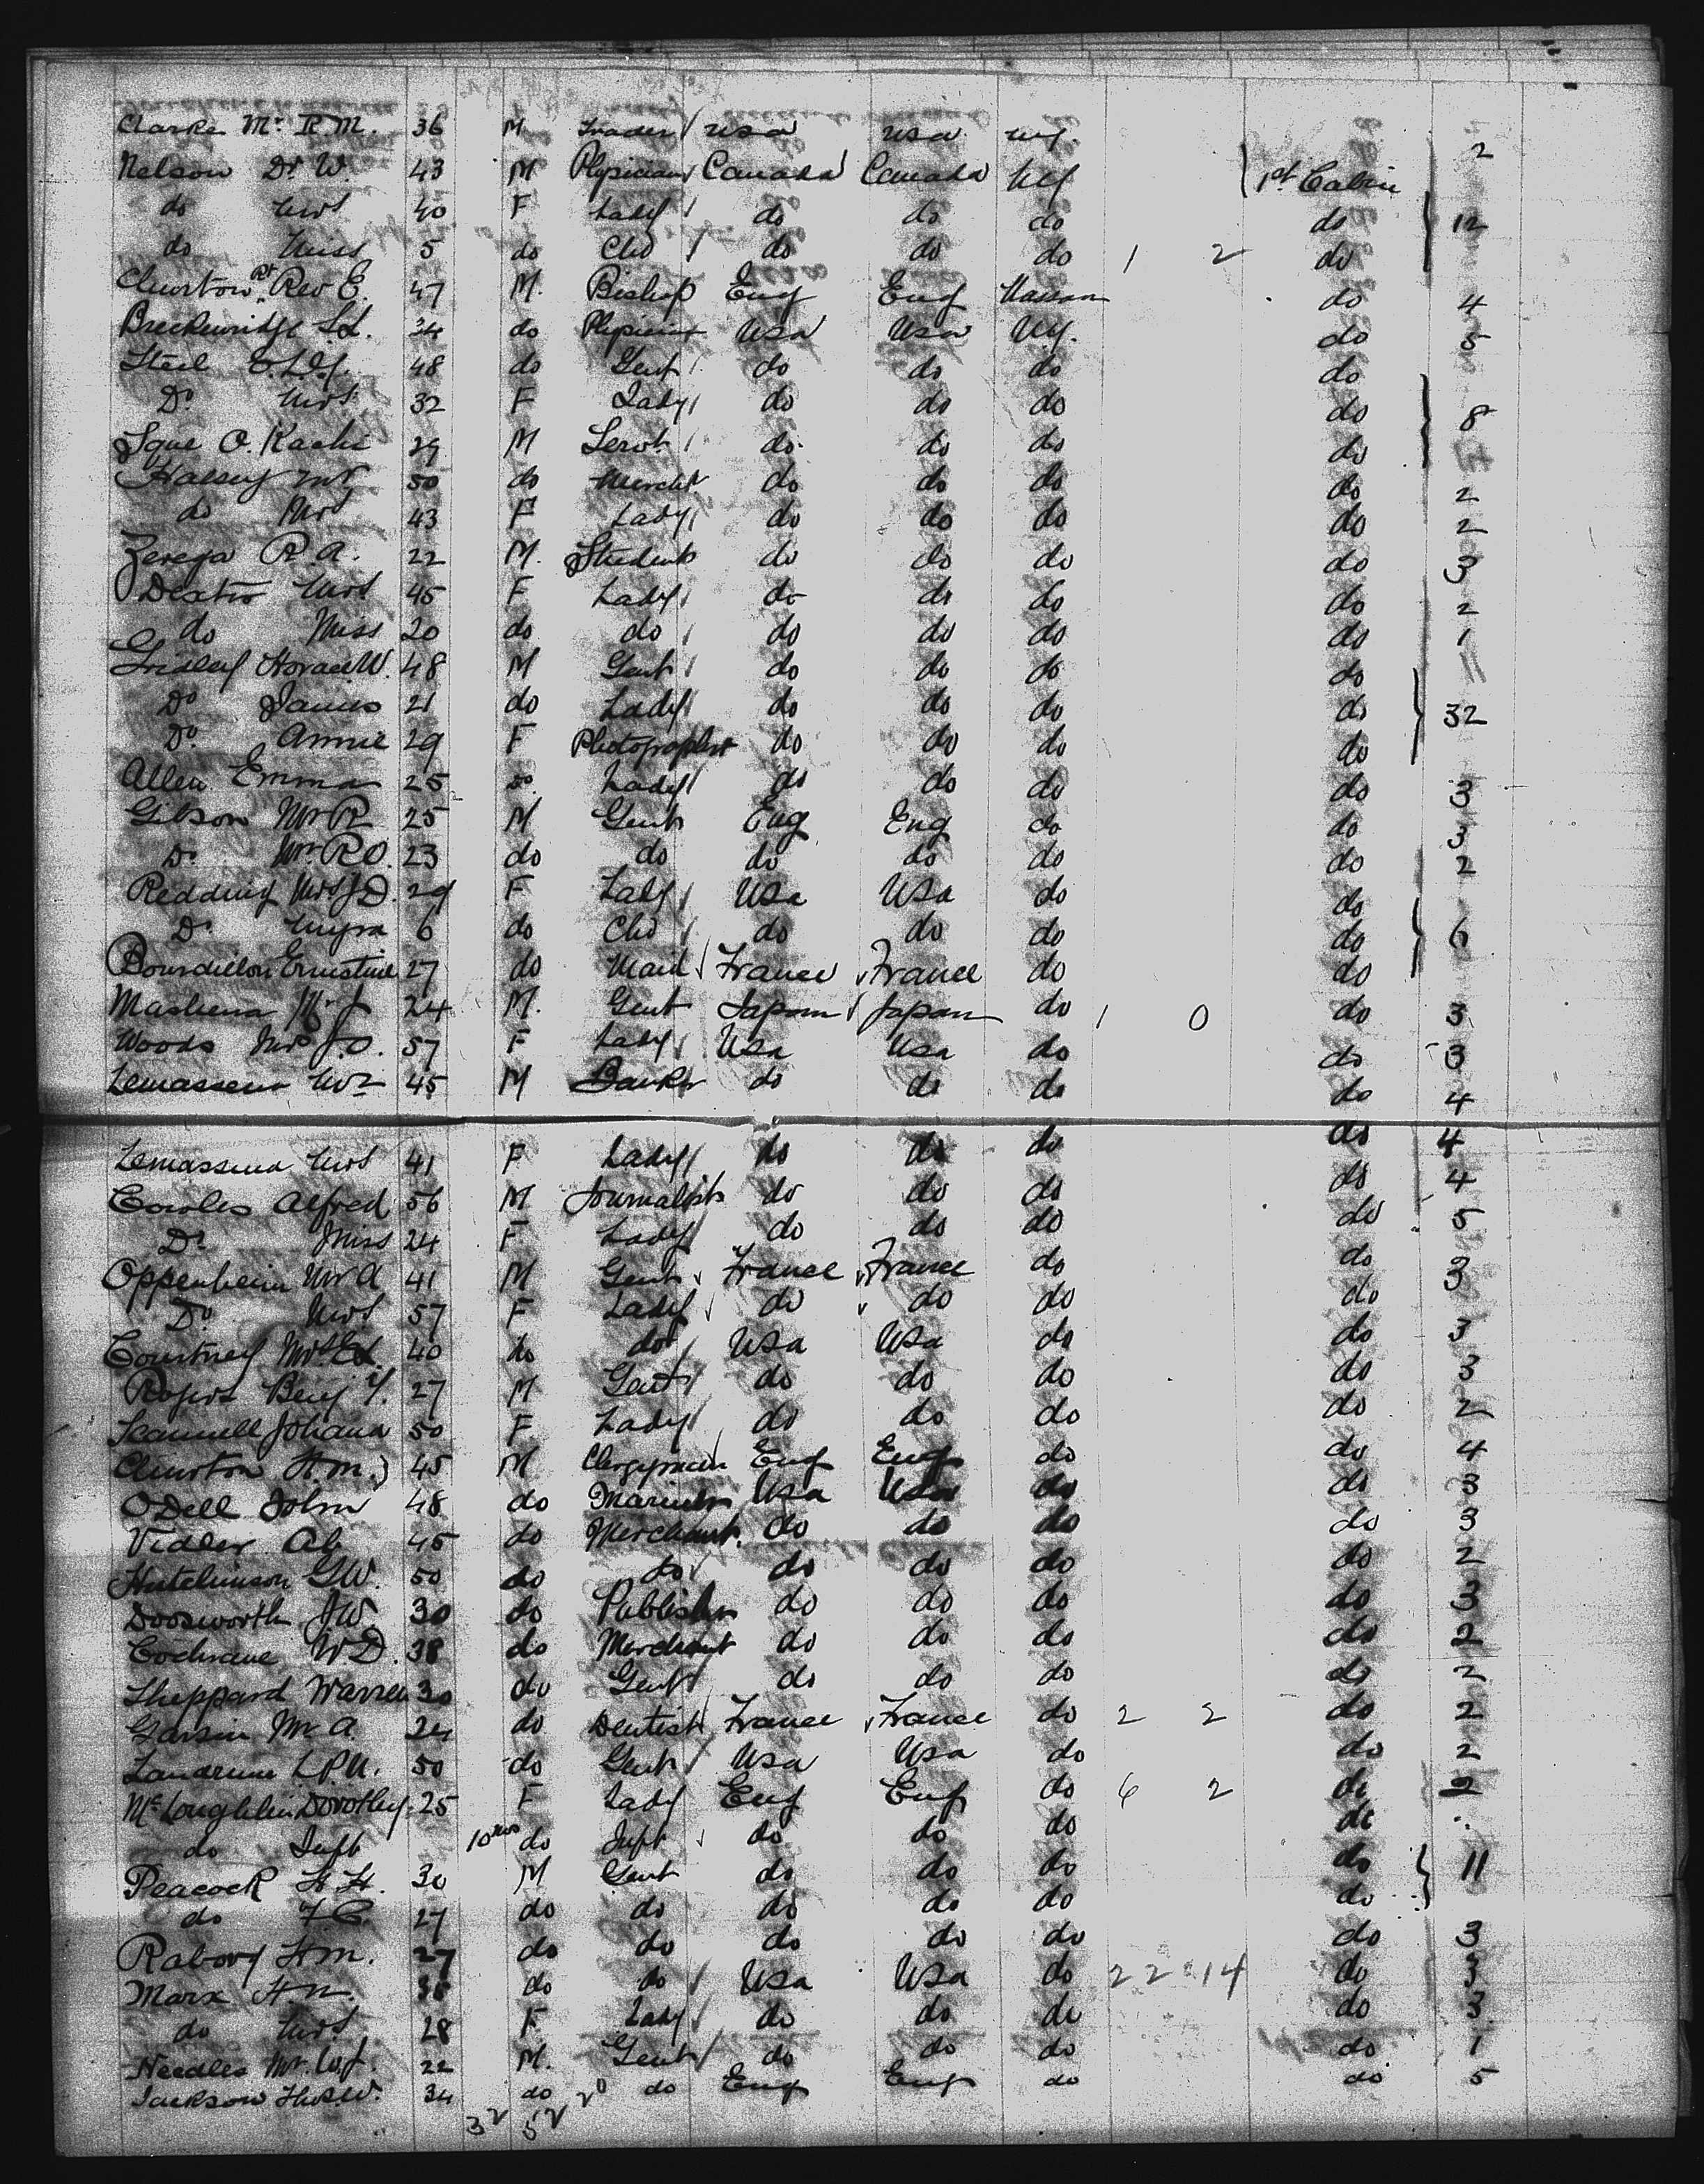 Clarke Mr R.M. 36 M Trader USA USA NY. 2
Nelson Dr W. 43 M Physician Canada Canada NY 1st Cabin
do Mrs 40 F Lady do do do do 12
do Miss 5 do Chd do do do 1 2 do
Churton Rt Rev E. 47 M. Bishop Eng Eng Nassau do 4
Breckenridge S.L. 34 do Physician USA USA NY. do 5
Steel 48 do Gent do do do do
Do Mrs 32 F Lady do do do do 8
O. Kachi 29 M Servt do do do do
Halsey Mr 50 do Mercht do do do do 2
do Mrs 43 F Lady do do do do 2
Zerega R.A. 22 M. Student do do do do 3
Dexter Mrs 45 F Lady do do do do 2
do Miss 20 do do do do do do 1
Gridley Horace W. 48 M Gent do do do do
Do James 21 do Lady do do do do 32
Do Annie 29 F Photographer do do do do
Allen Emma 25 do Lady do do do do 3
Gibson Mr R 25 M Gent Eng Eng do do 3
Do Mr R.O. 23 do do do do do do 2
Redding Mrs J.D. 29 F Lady USA USA do do
Do Myra 6 do Chd do do do do 6
Bourdillon Ernestine 27 do Maid France France do do
Mr J 24 M. Gent Japan Japan do 1 0 do 3
Woods Mrs J.O. 57 F Lady USA USA do do 3
Lemassena Mr 45 M Banker do do do do 4
Lemassena Mrs 41 F Lady do do do do 4
Cowles Alfred 56 M Journalist do do do do 4
Do Miss 24 F Lady do do do do 5
Oppenheim Mr A 41 M Gent France France do do 3
Do Mrs 57 F Lady do do do do
Courtney Mrs 40 do do USA USA do do 3
Rogers Benj Y. 27 M Gent do do do do 3
Scannell Johana 50 F Lady do do do do 2
Churton H.M. 45 M Clergyman Eng Eng do do 4
ODell John 48 do Mariner USA USA do do 3
Vidler Ab 45 do Merchant do do do do 3
Hutchinson G.W. 50 do do do do do do 2
Dodsworth J W 30 do Publisher do do do do 3
Cochrane W D. 38 do Merchant do do do do 2
Sheppard Warren 30 do Gent do do do do 2
Garsin Mr A. 24 do Dentist France France do 2 2 do 2
Landrum 50 do Gent USA USA do do 2
McLoughlin Dorothy 25 F Lady Eng Eng do 6 2 do 2
do Inft 10 mos do Inft do do do do
Peacock H.H. 30 M Gent do do do do 11
do F.C. 27 do do do do do do
Rabory H.M. 27 do do do do do do 3
Marx H 36 do do USA USA do 22 14 do 3
do Mrs 28 F Lady do do do do 3
Needles Mr W.J. 22 M. Gent do do do do 1
Jackson Thos W. 34 do do Eng Eng do do 5
32 52 20